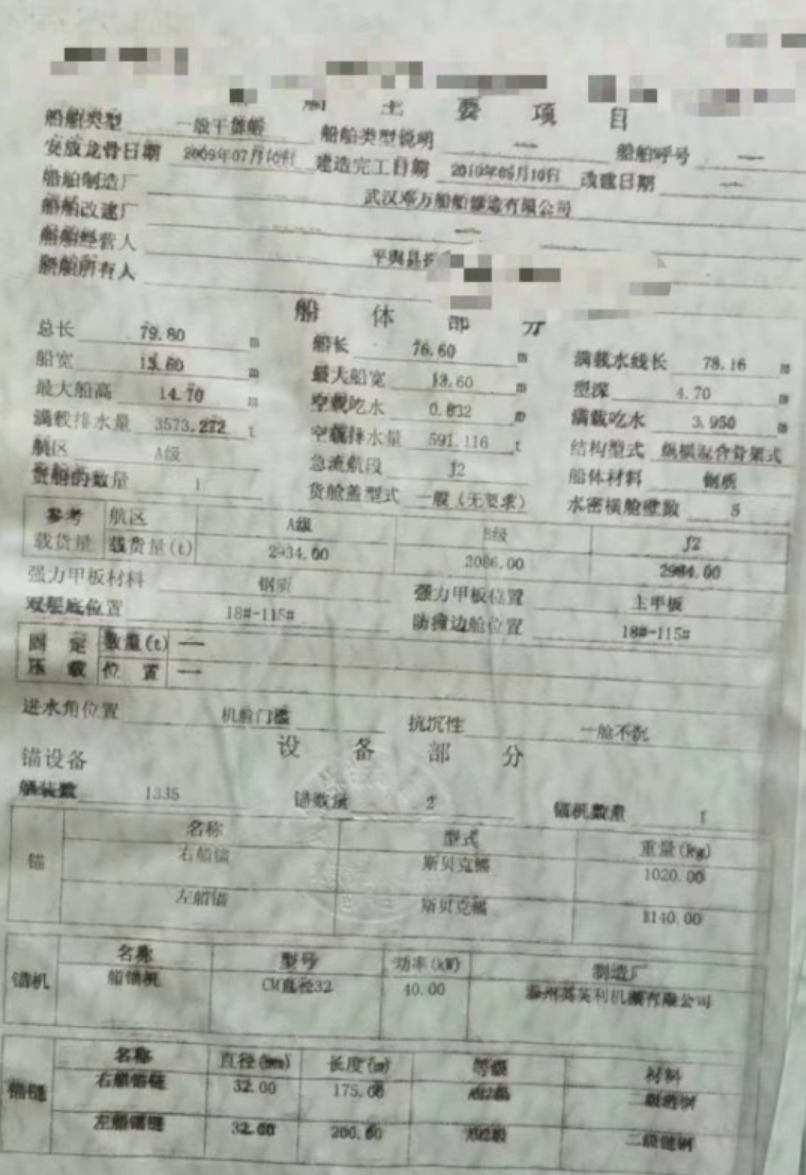 船舶主要项目
船舶类型 一般干货船 船舶类型说明 — 船舶呼号 —
安放龙骨日期 2009年07月10日 建造完工日期 2010年05月10日 改建日期 —
船舶制造厂 武汉 万船舶 造有限公司
船舶改建厂 —
船舶经营人 平舆县
船舶所有人
船体部分
总长 79.80 m 船长 76.60 m 满载水线长 78.16 m
船宽 13.60 m 最大船宽 13.60 m 型深 4.70 m
最大船高 14.70 m 空载吃水 0.832 m 满载吃水 3.950 m
满载排水量 3573.272 t 空载排水量 591.116 t 结构型式 纵横混合骨架式
航区 A级 急流航段 J2 船体材料 钢质
货舱的数量 1 货舱盖型式 一般(无要求) 水密横舱壁数 5
参考 航区 A级 B级 J2
载货量 载货量(t) 2934.00 3086.00 2984.00
强力甲板材料 钢质 强力甲板位置 主甲板
双层底位置 18#-115# 防撞边舱位置 18#-115#
固定 数量(t) —
压载 位置 —
进水角位置 机舱门槛 抗沉性 一舱不沉
设备部分
锚设备
舾装数 1335 锚数量 2 锚机数量 1
名称 型式 重量(kg)
锚 右船锚 斯贝克锚 1020.00
左船锚 斯贝克锚 1140.00
名称 型号 功率(kW) 制造厂
锚机 船锚机 CM直径32 40.00 泰州 英利机 有限公司
名称 直径(mm) 长度(m) 等级 材料
锚链 右船锚链 32.00 175.00 AM2级
左船锚链 32.00 200.00 AM2级